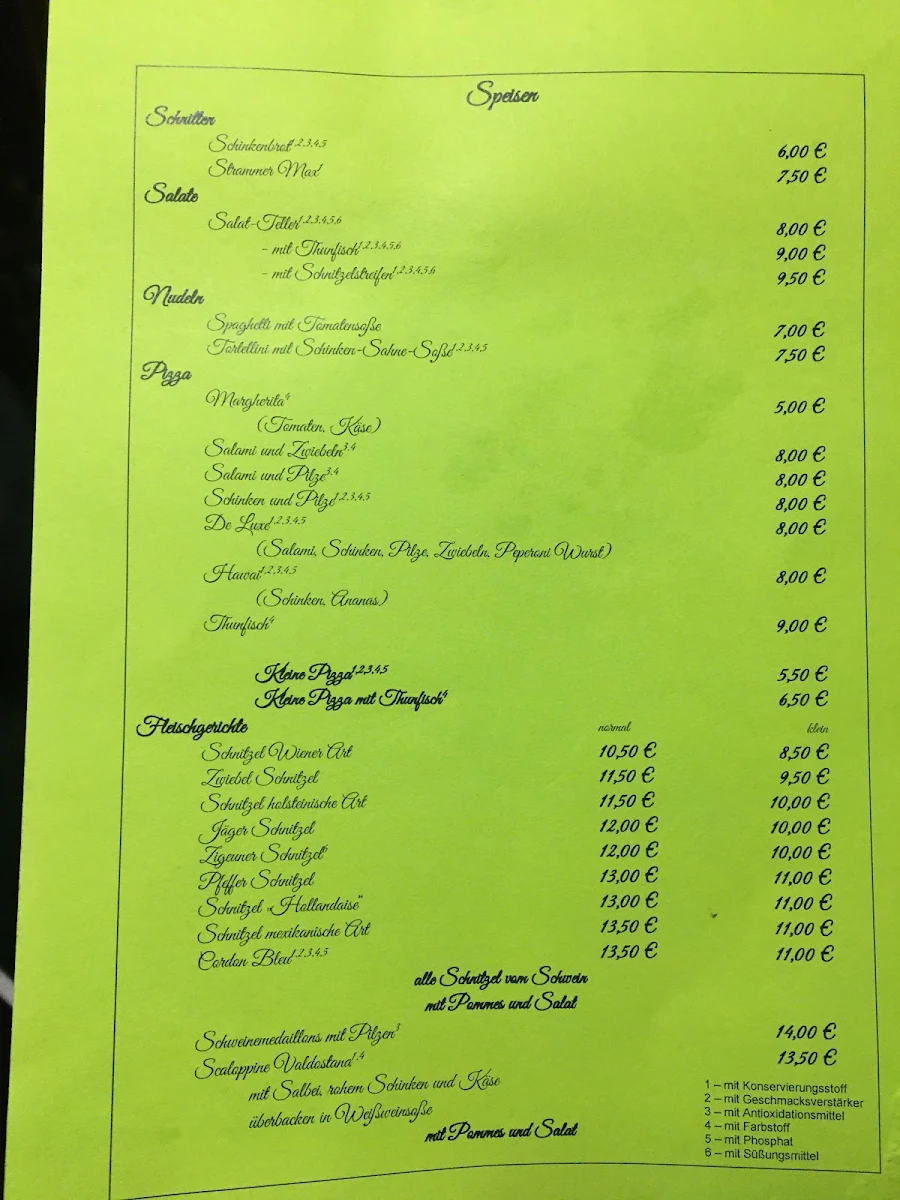 Speisen
Schnitten
Schinkenbrot1,2,3,4,5 6,00 €
Strammer Max1 7,50 €
Salate
Salat-Teller1,2,3,4,5,6 8,00 €
- mit Thunfisch1,2,3,4,5,6 9,00 €
- mit Schnitzelstreifen1,2,3,4,5,6 9,50 €
Nudeln
Spaghetti mit Tomatensoße 7,00 €
Tortellini mit Schinken-Sahne-Soße1,2,3,4,5 7,50 €
Pizza
Margherita4 5,00 €
(Tomaten, Käse)
Salami und Zwiebeln3,4 8,00 €
Salami und Pilze3,4 8,00 €
Schinken und Pilze1,2,3,4,5 8,00 €
De Luxe1,2,3,4,5 8,00 €
(Salami, Schinken, Pilze, Zwiebeln, Peperoni Wurst)
Hawai1,2,3,4,5 8,00 €
(Schinken, Ananas)
Thunfisch4 9,00 €
Kleine Pizza1,2,3,4,5 5,50 €
Kleine Pizza mit Thunfisch4 6,50 €
Fleischgerichte normal klein
Schnitzel Wiener Art 10,50 € 8,50 €
Zwiebel Schnitzel 11,50 € 9,50 €
Schnitzel holsteinische Art 11,50 € 10,00 €
Jäger Schnitzel 12,00 € 10,00 €
Zigeuner Schnitzel6 12,00 € 10,00 €
Pfeffer Schnitzel 13,00 € 11,00 €
Schnitzel „Hollandaise" 13,00 € 11,00 €
Schnitzel mexikanische Art 13,50 € 11,00 €
Cordon Bleu1,2,3,4,5 13,50 € 11,00 €
alle Schnitzel vom Schwein
mit Pommes und Salat
Schweinemedaillons mit Pilzen3 14,00 €
Scaloppine Valdostana1,4 13,50 €
mit Salbei, rohem Schinken und Käse
überbacken in Weißweinsoße
mit Pommes und Salat
1 – mit Konservierungsstoff
2 – mit Geschmacksverstärker
3 – mit Antioxidationsmittel
4 – mit Farbstoff
5 – mit Phosphat
6 – mit Süßungsmittel